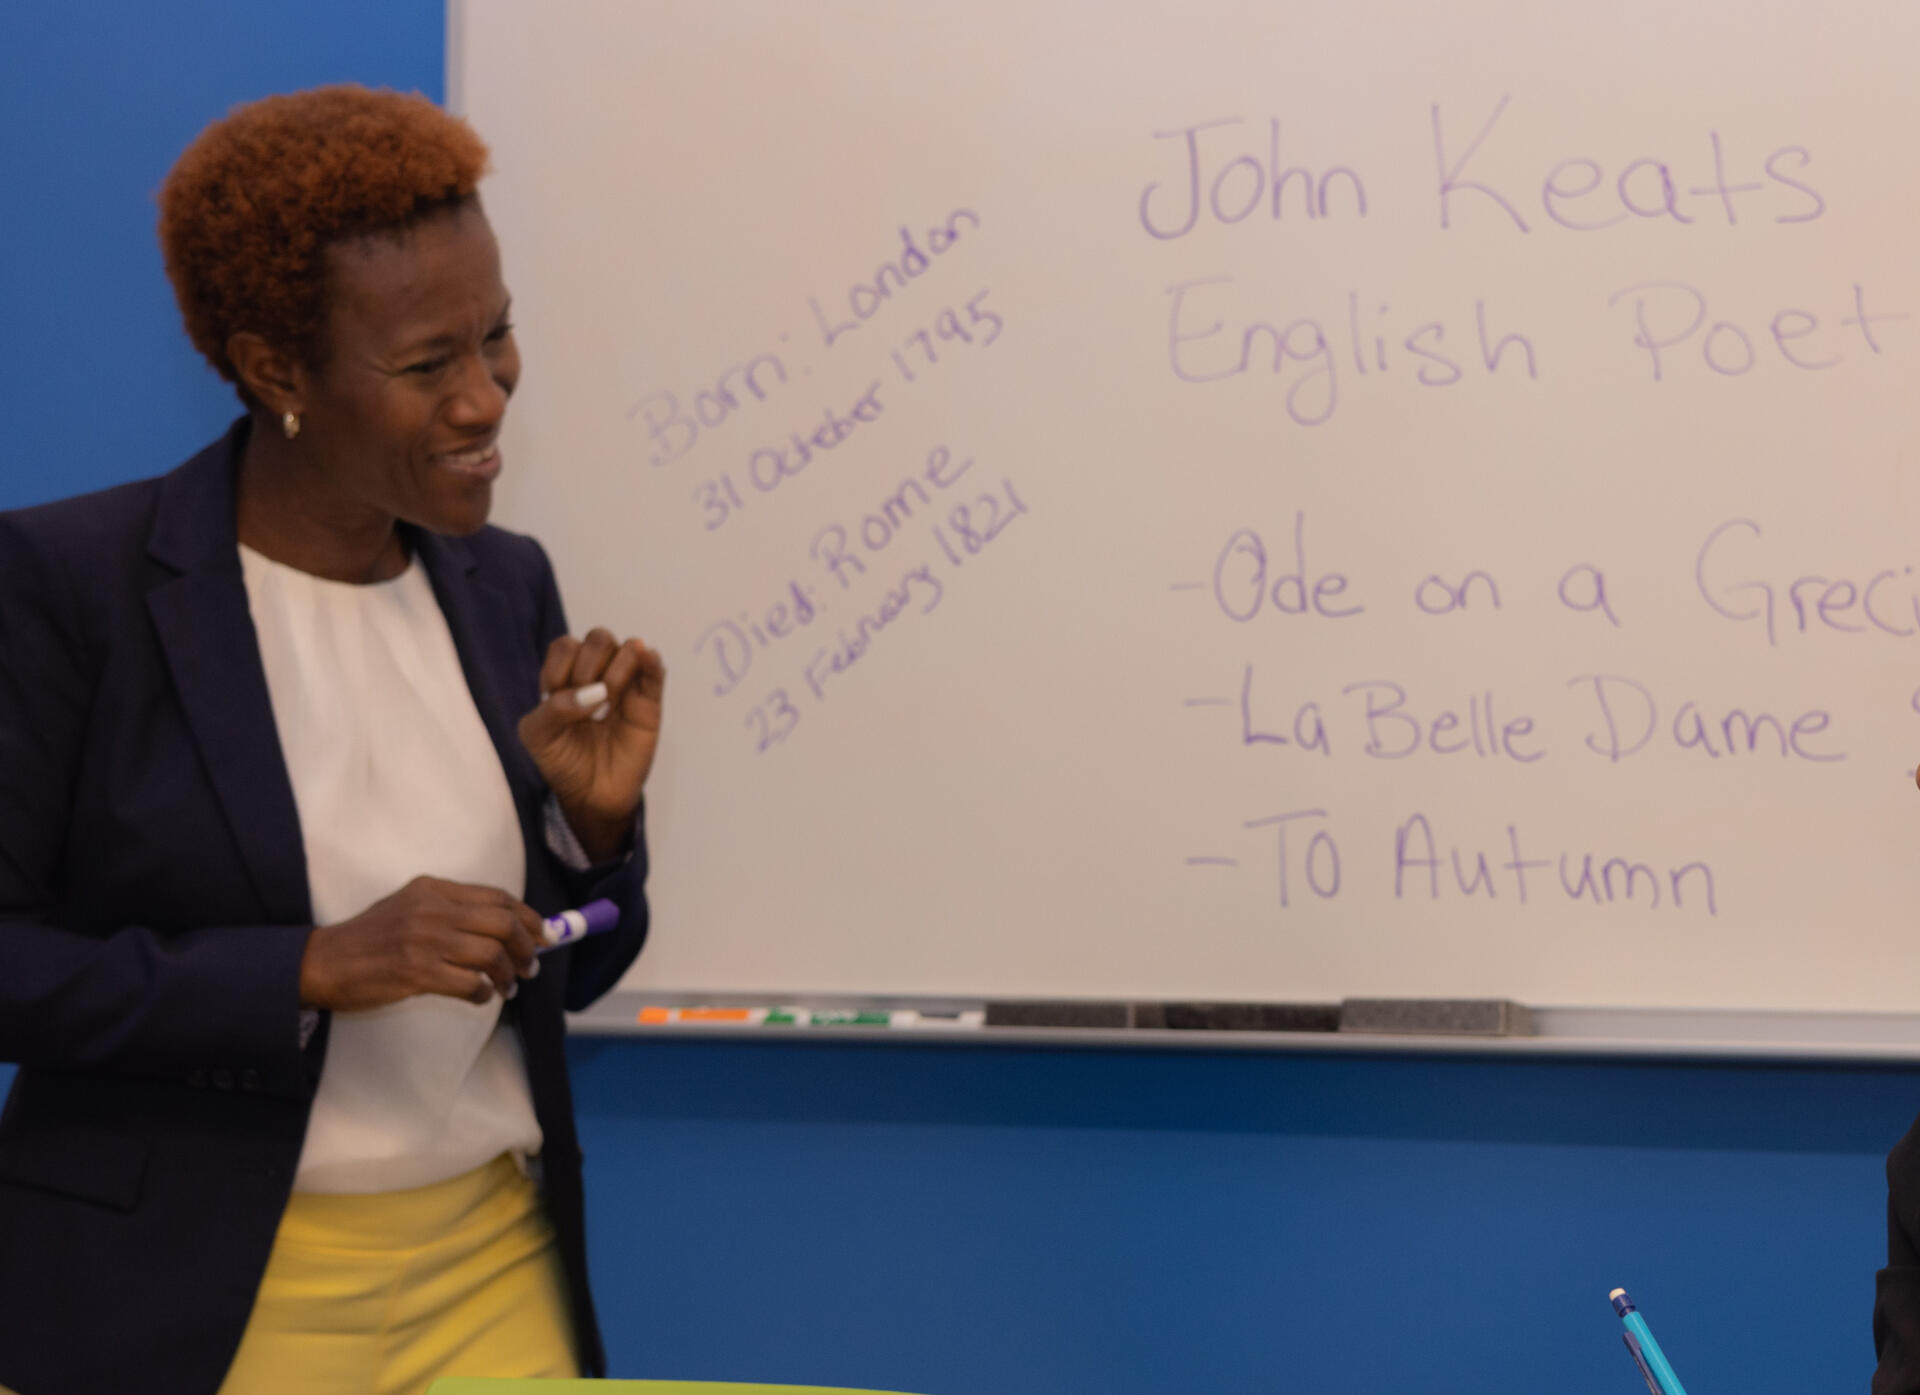 John Keats
English Poet
Born: London
31 October 1795
Died: Rome
23 February 1821
- Ode on a Greci
- La Belle Dame
- To Autumn